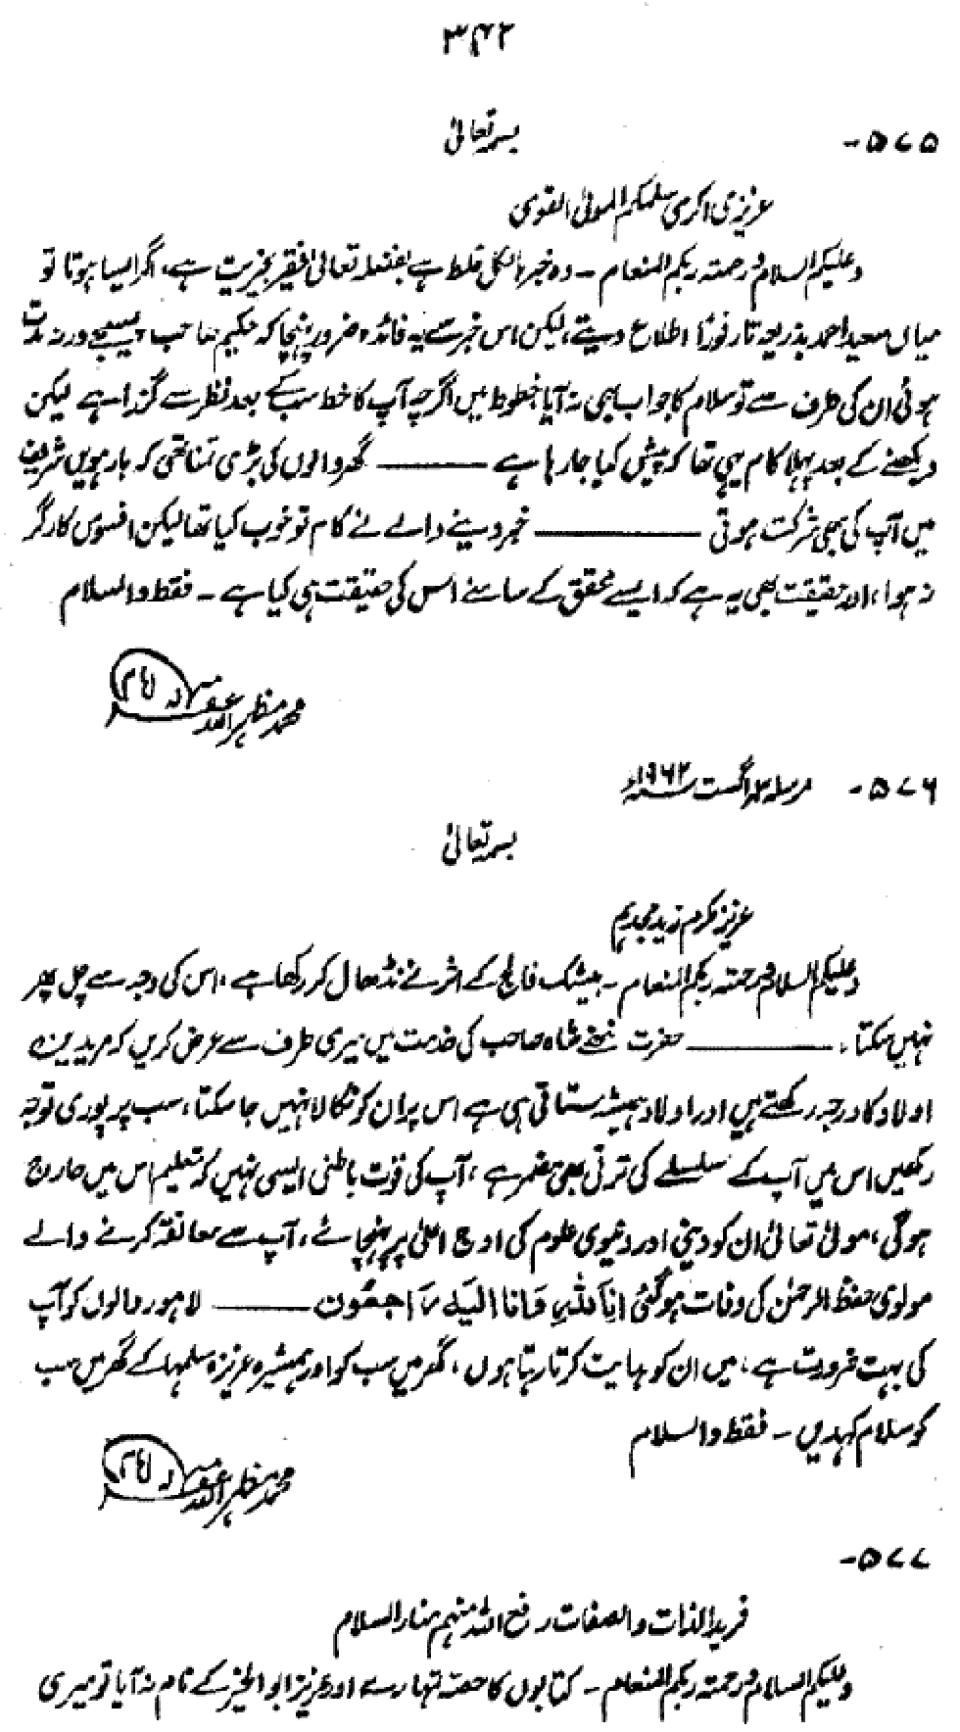 ۳۴۲
۵۷۵-
بسمہ تعالیٰ
عزیزی اکرمی سلمکم المولیٰ القوی
وعلیکم السلام ورحمتہ ربکم المنعام - وہ خبر بالکل غلط ہے بفضلہ تعالیٰ فقیر بخیریت ہے، اگر ایسا ہوتا تو
میاں سعید احمد بذریعہ تار فوراً اطلاع دیتے، لیکن اس خبر سے یہ فائدہ ضرور پہنچا کہ حکیم صاحب پسیجے ورنہ مدت
ہوئی ان کی طرف سے تو سلام کا جواب بھی نہ آیا خطوط میں اگرچہ آپ کا خط سب کے بعد نظر سے گزرا ہے لیکن
دیکھنے کے بعد پہلا کام یہی تھا کہ پیش کیا جا رہا ہے ——— گھر والوں کی بڑی تمنا تھی کہ بارہویں شریف
میں آپ کی بھی شرکت ہوتی ——— خبر دینے والے نے کام تو خوب کیا تھا لیکن افسوس کارگر
نہ ہوا، اور حقیقت بھی یہ ہے کہ ایسے محقق کے سامنے اس کی حقیقت ہی کیا ہے - فقط والسلام
محمد مظہر اللہ غفرلہ
۵۷۶- مرسلہ اگست ۱۹۶۲ء
بسمہ تعالیٰ
عزیز مکرم زید مجدہم
وعلیکم السلام ورحمتہ ربکم المنعام - بیشک فالج کے اثر نے نڈھال کر رکھا ہے، اس کی وجہ سے چل پھر
نہیں سکتا۔ ——— حضرت ننھے شاہ صاحب کی خدمت میں میری طرف سے عرض کریں کہ مریدین
اولاد کا درجہ رکھتے ہیں اور اولاد ہمیشہ ستاتی ہی ہے اس پر ان کو نکالا نہیں جا سکتا، سب پر پوری توجہ
رکھیں اس میں آپ کے سلسلے کی ترقی بھی مضمر ہے، آپ کی قوت باطنی ایسی نہیں کہ تعلیم اس میں حارج
ہوگی، مولیٰ تعالیٰ ان کو دینی اور دنیوی علوم کی اوج اعلیٰ پر پہنچائے، آپ سے معانقہ کرنے والے
مولوی حفظ الرحمٰن کی وفات ہو گئی اِنَّا لِلّٰہِ وَاِنَّا اِلَیْہِ رَاجِعُون ——— لاہور والوں کو آپ
کی بہت ضرورت ہے، میں ان کو ہدایت کرتا رہتا ہوں، گھر میں سب کو اور ہمشیرہ عزیزہ سلمہا کے گھر میں سب
کو سلام کہدیں - فقط والسلام
محمد مظہر اللہ غفرلہ
۵۷۷-
فرید الذات والصفات رفع اللہ منہم منار السلام
وعلیکم السلام ورحمتہ ربکم المنعام - کتابوں کا حصہ تمہارے اور عزیز ابوالخیر کے نام نہ آیا تو میری